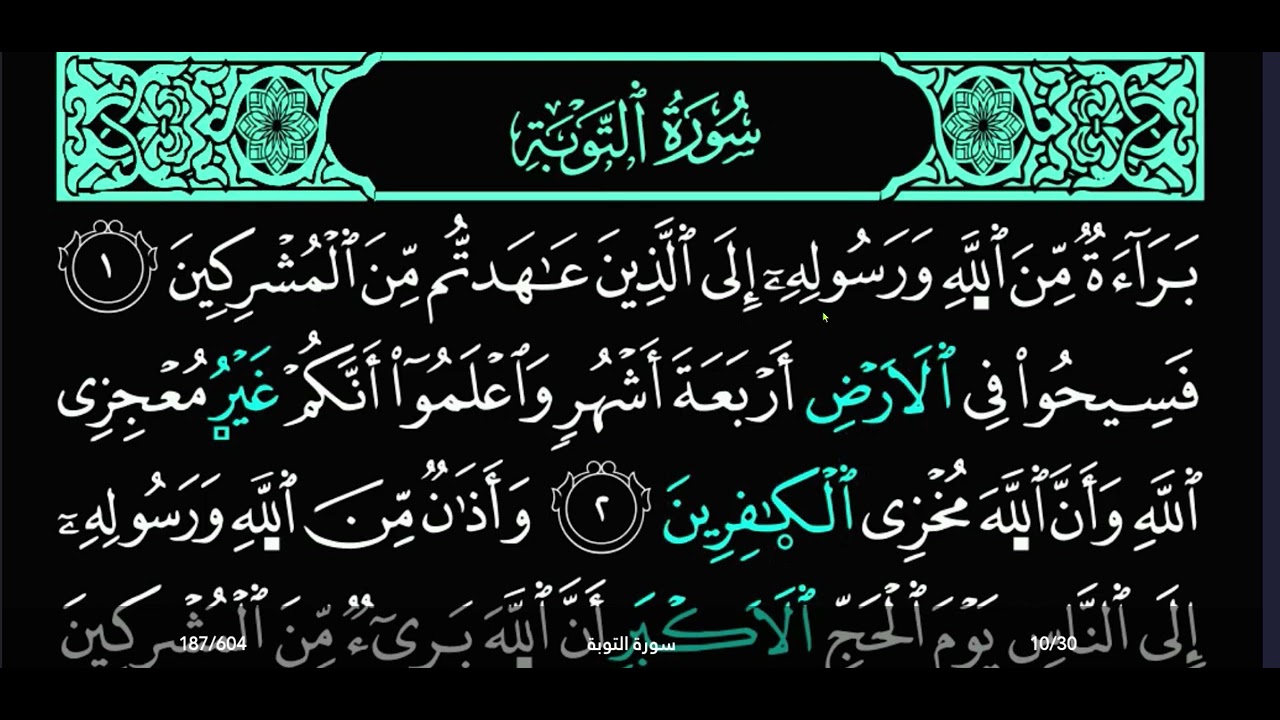 سُورَةُ التَّوۡبَةِ
بَرَآءَةٌ مِّنَ ٱللَّهِ وَرَسُولِهِۦٓ إِلَى ٱلَّذِينَ عَٰهَدتُّم مِّنَ ٱلۡمُشۡرِكِينَ ١
فَسِيحُواْ فِي ٱلَارۡضِ أَرۡبَعَةَ أَشۡهُرٖ وَٱعۡلَمُوٓاْ أَنَّكُمۡ غَيۡرُ مُعۡجِزِي
ٱللَّهِ وَأَنَّ ٱللَّهَ مُخۡزِي ٱلۡكٰ۪فِرِينَ ٢ وَأَذَٰنٞ مِّنَ ٱللَّهِ وَرَسُولِهِۦٓ
إِلَى ٱلنَّاسِ يَوۡمَ ٱلۡحَجِّ ٱلَاكۡبَرِ أَنَّ ٱللَّهَ بَرِيٓءٞ مِّنَ ٱلۡمُشۡرِكِينَ
10/30 سورة التوبة 187/604